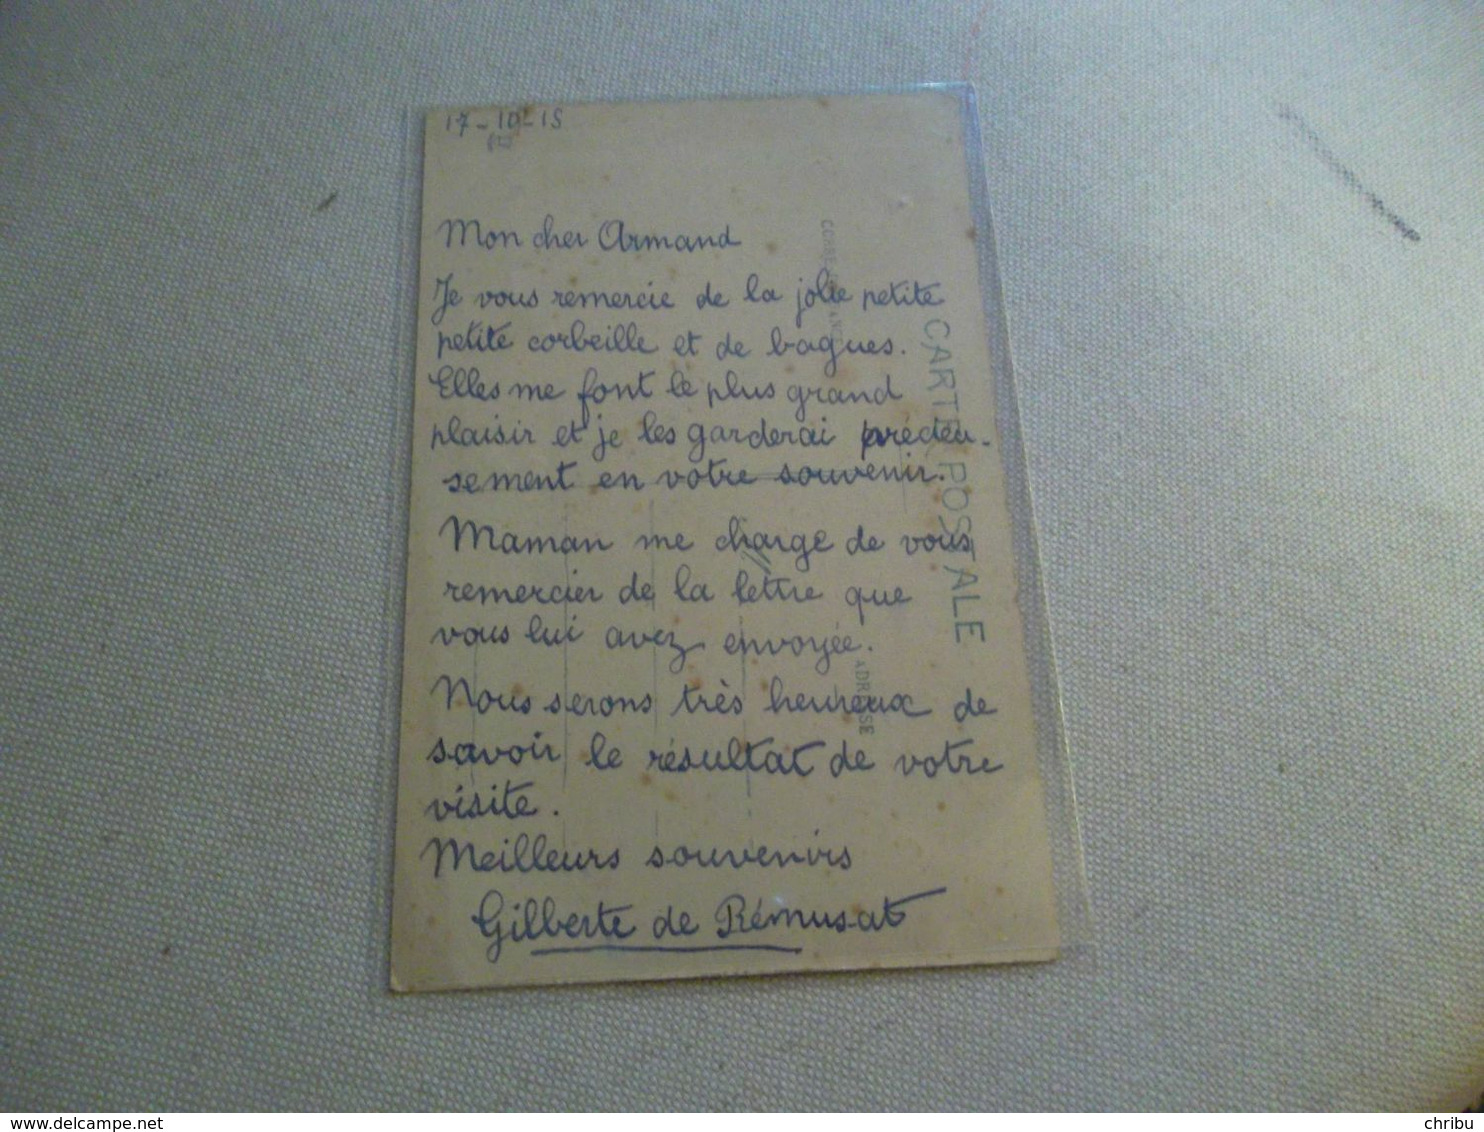 17-10-15
Mon cher Armand
Je vous remercie de la jolie petite
petite corbeille et de bagues.
Elles me font le plus grand
plaisir et je les garderai précieu-
sement en votre souvenir.
Maman me charge de vous
remercier de la lettre que
vous lui avez envoyée.
Nous serons très heureux de
savoir le résultat de votre
visite.
Meilleurs souvenirs
Gilberte de Rémusat
CARTE POSTALE
ADRESSE
delcampe.net
chribu